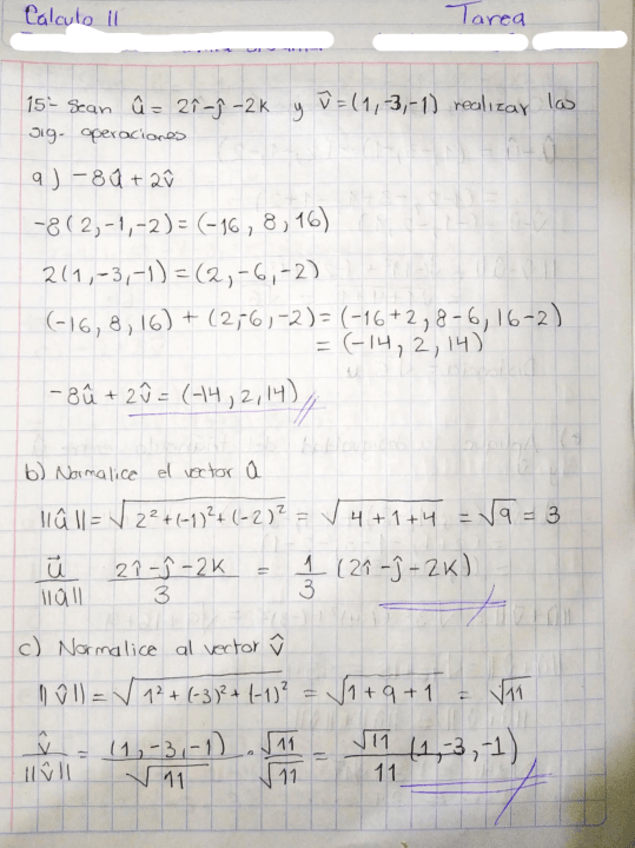 Calculo II Tarea
15- Sean û = 2î-ĵ-2k y v̂=(1,-3,-1) realizar las
sig. operaciones
a) -8û+2v̂
-8(2,-1,-2)=(-16,8,16)
2(1,-3,-1)=(2,-6,-2)
(-16,8,16)+(2,-6,-2)=(-16+2,8-6,16-2)
=(-14,2,14)
-8û+2v̂=(-14,2,14)
b) Normalice el vector û
||û||=√2²+(-1)²+(-2)² = √4+1+4 = √9 = 3
u⃗/||û|| 2î-ĵ-2k/3 = 1/3 (2î-ĵ-2k)
c) Normalice al vector v̂
||v̂||=√1²+(-3)²+(-1)² = √1+9+1 = √11
v̂/||v̂|| = (1,-3,-1)/√11 · √11/√11 = √11/11 (1,-3,-1)